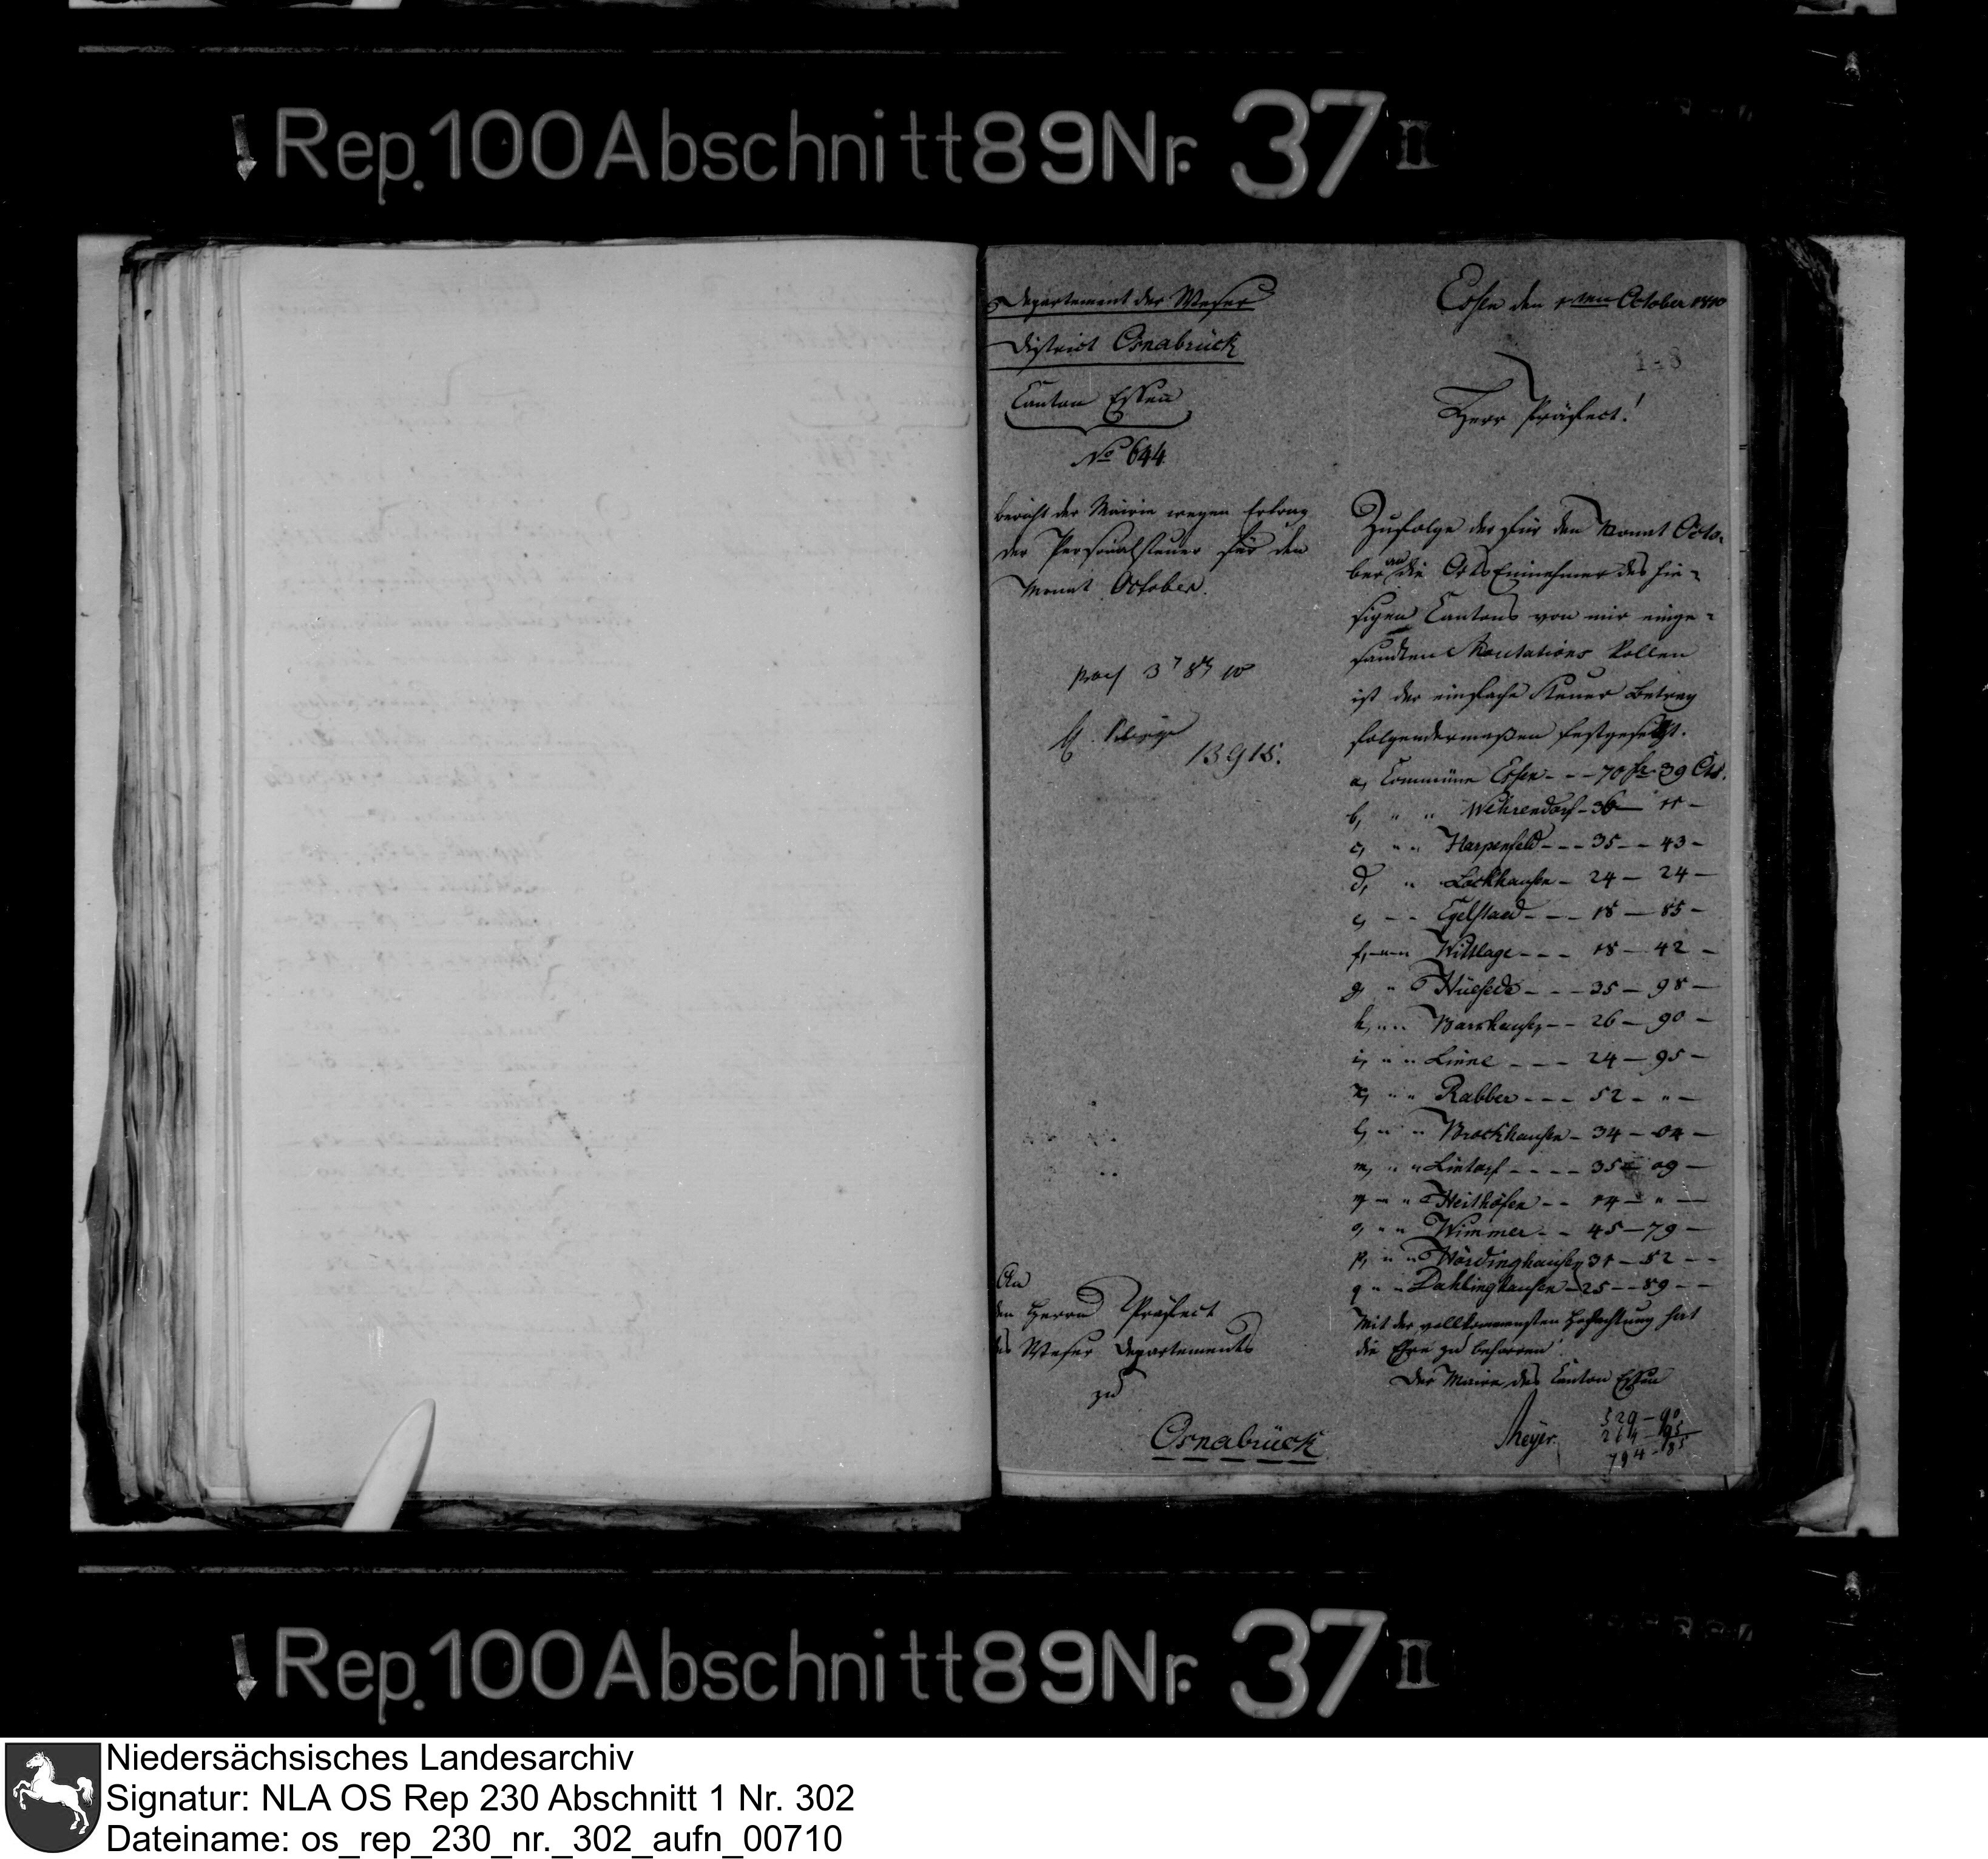 Rep. 100 Abschnitt 89 Nr. 37 II
Departement der Weser
District Osnabrück
Canton Essen
No 644
Bericht der Mairie wegen Ertrag
der Personalsteuer für den
Monat October.
13915.
An
den Herrn Präfect
des Weser Departements
zu
Osnabrück
Essen den 1ten October 1810
Herr Präfect!
Zufolge der für den Monat Octo-
ber an die Orts Einnehmer des hie-
sigen Cantons von mir einge-
sandten Mutations Rollen
ist der einfache Steuer Betrag
folgendermaßen festgesetzt.
a, Commüne Essen - - - 70 fr 39 Cts.
b, " " Wehrendorf - 36 — 11 -
c, " " Harpenfeld - - - 35 - - 43 -
d, " Lockhausen - 24 — 24 —
e, - - Egelstaed - - - 18 — 85 -
f, " " Wittlage - - - 18 — 42 -
g, " Hüsede - - - 35 — 98 —
h, " " Barkhausen - - 26 — 90 -
i, " " Linne - - - 24 — 95 -
k, " " Rabber - - - 52 - " -
l, " " Brockhausen - 34 - 04 —
m, " " Lintorf - - - - 35 — 09 —
n, " " Heithöfen - - 14 — " —
o, " " Wimmer - - 45 — 79 —
p, " " Hördinghausen 31 — 52 - -
q, " " Dahlinghausen - 25 - - 89 - -
Mit der vollkommensten Hochachtung hat
die Ehre zu beharren
Der Maire des Canton Essen
Meyer.
529 - 90
264 - 95
794 - 85
Rep. 100 Abschnitt 89 Nr. 37 II
Niedersächsisches Landesarchiv
Signatur: NLA OS Rep 230 Abschnitt 1 Nr. 302
Dateiname: os_rep_230_nr._302_aufn_00710